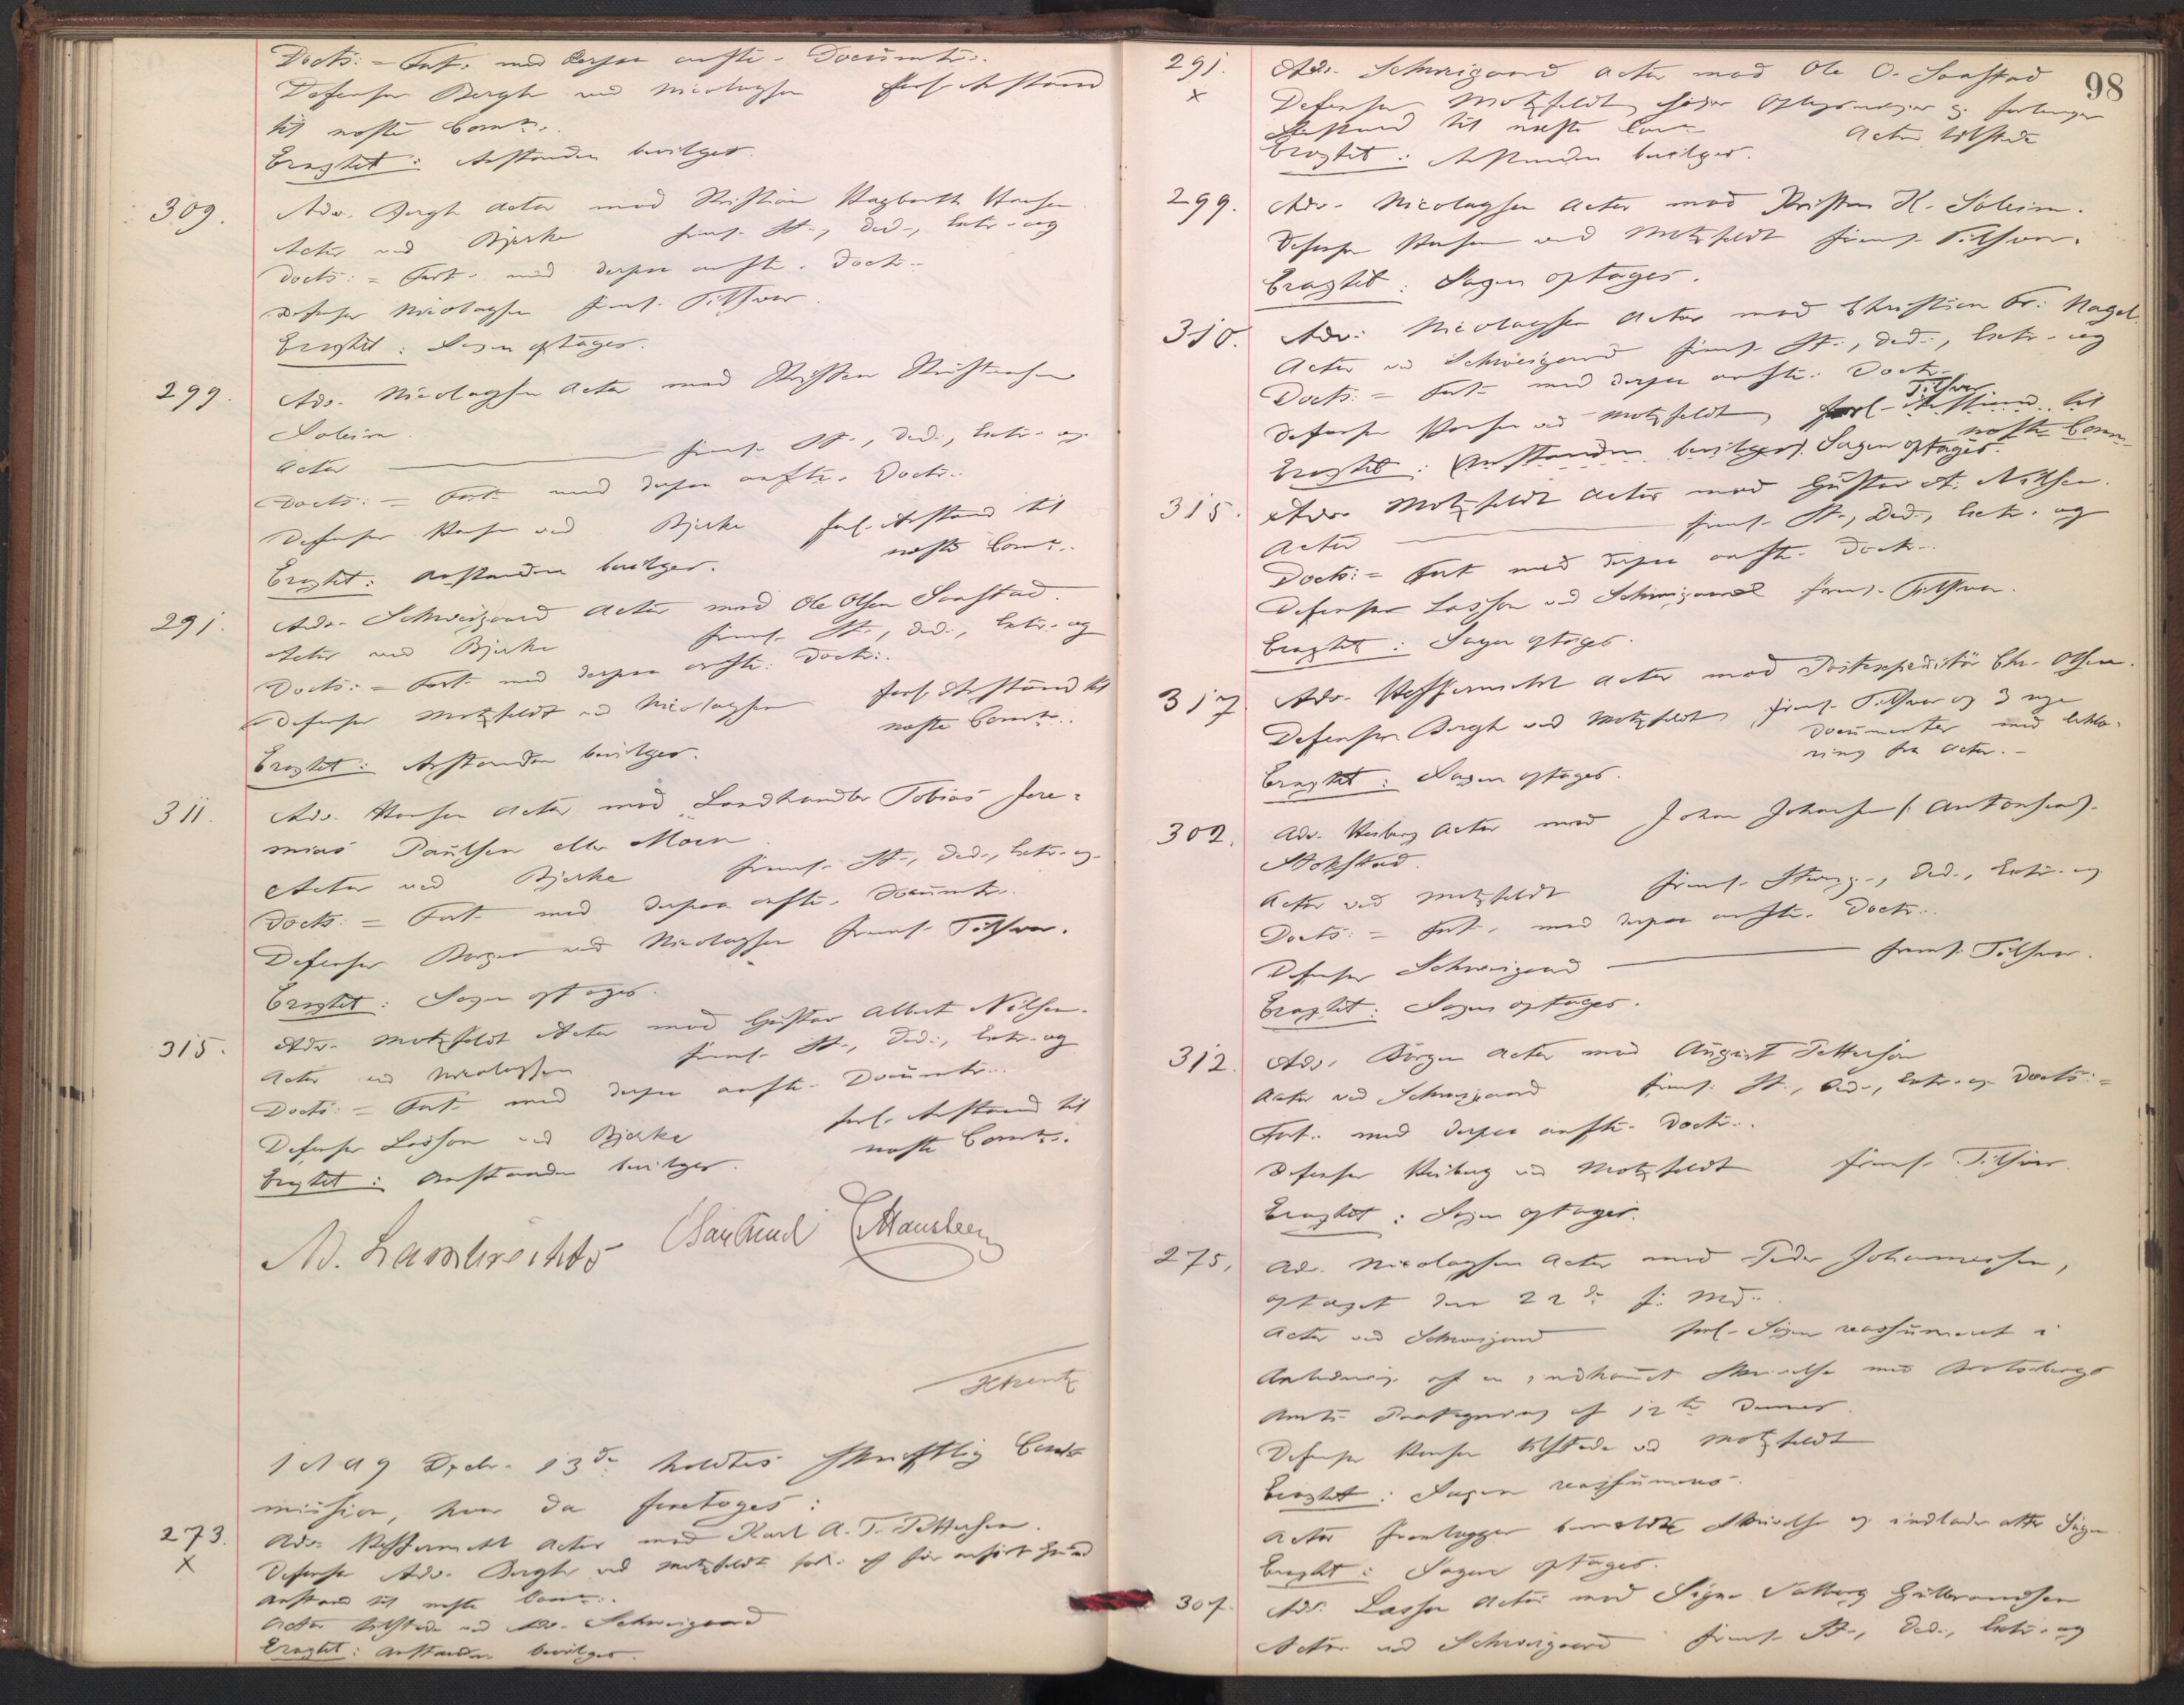 Docts: = Fort. med derpaa anfte. Documtr..
Defensor Bergh ved Nicolaysen forl. Anstand
til næste Comn..
Eragtet: Anstanden bevilges.
309. Adv. Bergh Actor mod Kristian Hagbarth Hansen
Actor ved Bjerke freml. St., Ded., Extr. og
Docts: = Fort. med derpaa anfte. Doctr..
Defensor Nicolaysen freml. Tilsvar.
Eragtet: Sagen optages.
299. Adv. Nicolaysen Actor mod Kristen Kristensen
Soleim.
Actor — freml. St., Ded., Extr. og
Docts: = Fort. med derpaa anfte. Doctr..
Defensor Hansen ved Bjerke forl. Anstand til
næste Comn..
Eragtet: Anstanden bevilges.
291. Adv. Schweigaard Actor mod Ole Olsen Saastad.
Actor ved Bjerke freml. St., Ded., Extr. og
Docts: = Fort. med derpaa anfte. Doctr..
Defensor Motzfeldt ved Nicolaysen forl. Anstand til
næste Comn..
Eragtet: Anstanden bevilges.
311. Adv. Hansen Actor mod Landhandler Tobias Jere=
mias Paulsen eller Moen
Actor ved Bjerke freml. St., Ded., Extr. og
Docts: = Fort. med derpaa anfte. Documtr..
Defensor Borgen ved Nicolaysen freml. Tilsvar.
Eragtet: Sagen optages.
315. Adv. Motzfeldt Actor mod Gustav Albert Nilsen.
Actor ved Nicolaysen freml. St., Ded., Extr. og
Docts: = Fort. med derpaa anfte. Documtr..
Defensor Lasson ved Bjerke forl. Anstand til
næste Comn..
Eragtet: Anstanden bevilges.
Ad. Lambrechts Hansteen
1889 Dcbr. 13de holdtes skriftlig Com=
mission, hvor da foretoges:
273. Adv. Hesselberg Actor mod Karl A. T. Pettersen.
X Defensor Adv. Bergh ved Motzfeldt forl. af før anført Grund
Anstand til næste Comn..
Actor tilstede ved Adv. Schweigaard
Eragtet: Anstanden bevilges.
98
291. Adv. Schweigaard Actor mod Ole O. Saastad
X Defensor Motzfeldt søger Oplysninger og forlanger
Anstand til næste Comn. Actor tilstede
Eragtet: Anstanden bevilges.
299. Adv. Nicolaysen Actor mod Kristen K. Soleim.
Defensor Hansen ved Motzfeldt freml. Tilsvar.
Eragtet: Sagen optages.
310. Adv. Nicolaysen Actor mod Christian Fr. Nagel.
Actor ved Schweigaard freml. St., Ded., Extr. og
Docts: = Fort. med derpaa anfte. Doctr..
Tilsvar
Defensor Hansen ved Motzfeldt forl. Anstand til
næste Comn..
Eragtet: Anstanden bevilges. Sagen optages.
315. Adv. Motzfeldt Actor mod Gustav A. Nilsen.
Actor — freml. St., Ded., Extr. og
Docts: = Fort. med derpaa anfte. Doctr..
Defensor Lasson ved Schweigaard freml. Tilsvar.
Eragtet: Sagen optages.
317. Adv. Actor mod Postexpeditør Chr. Olsen.
Defensor Bergh ved Motzfeldt freml. Tilsvar og 3 nye
Documenter med Erklæ=
ring fra Actor.
Eragtet: Sagen optages.
302. Adv. Heiberg Actor mod Johan Johansen (: Antonsen:)
Stokstad.
Actor ved Motzfeldt freml. Stevng., Ded., Extr. og
Docts: = Fort. med derpaa anfte. Doctr..
Defensor Schweigaard — freml. Tilsvar.
Eragtet: Sagen optages.
312. Adv. Borgen Actor mod August Petterson
Actor ved Schweigaard freml. St., Ded., Extr. og Docts: =
Fort. med derpaa anfte. Doctr..
Defensor Heiberg ved Motzfeldt freml. Tilsvar.
Eragtet: Sagen optages.
275. Adv. Nicolaysen Actor mod Peder Johannessen,
optaget den 22de f. Md..
Actor ved Schweigaard forl. Sagen reassumeret i
Anledning af en indkommet Skrivelse med Bratsbergs
Amts Paategning af 12te dennes.
Defensor Hansen tilstede ved Motzfeldt
Eragtet: Sagen reassumeres.
Actor fremlægger bemeldte Skrivelse og indlader atter Sagen.
Eragtet: Sagen optages.
307. Adv. Lasson Actor mod Signe Valborg Gulbrandsen
Actor ved Schweigaard freml. St., Ded., Extr. og